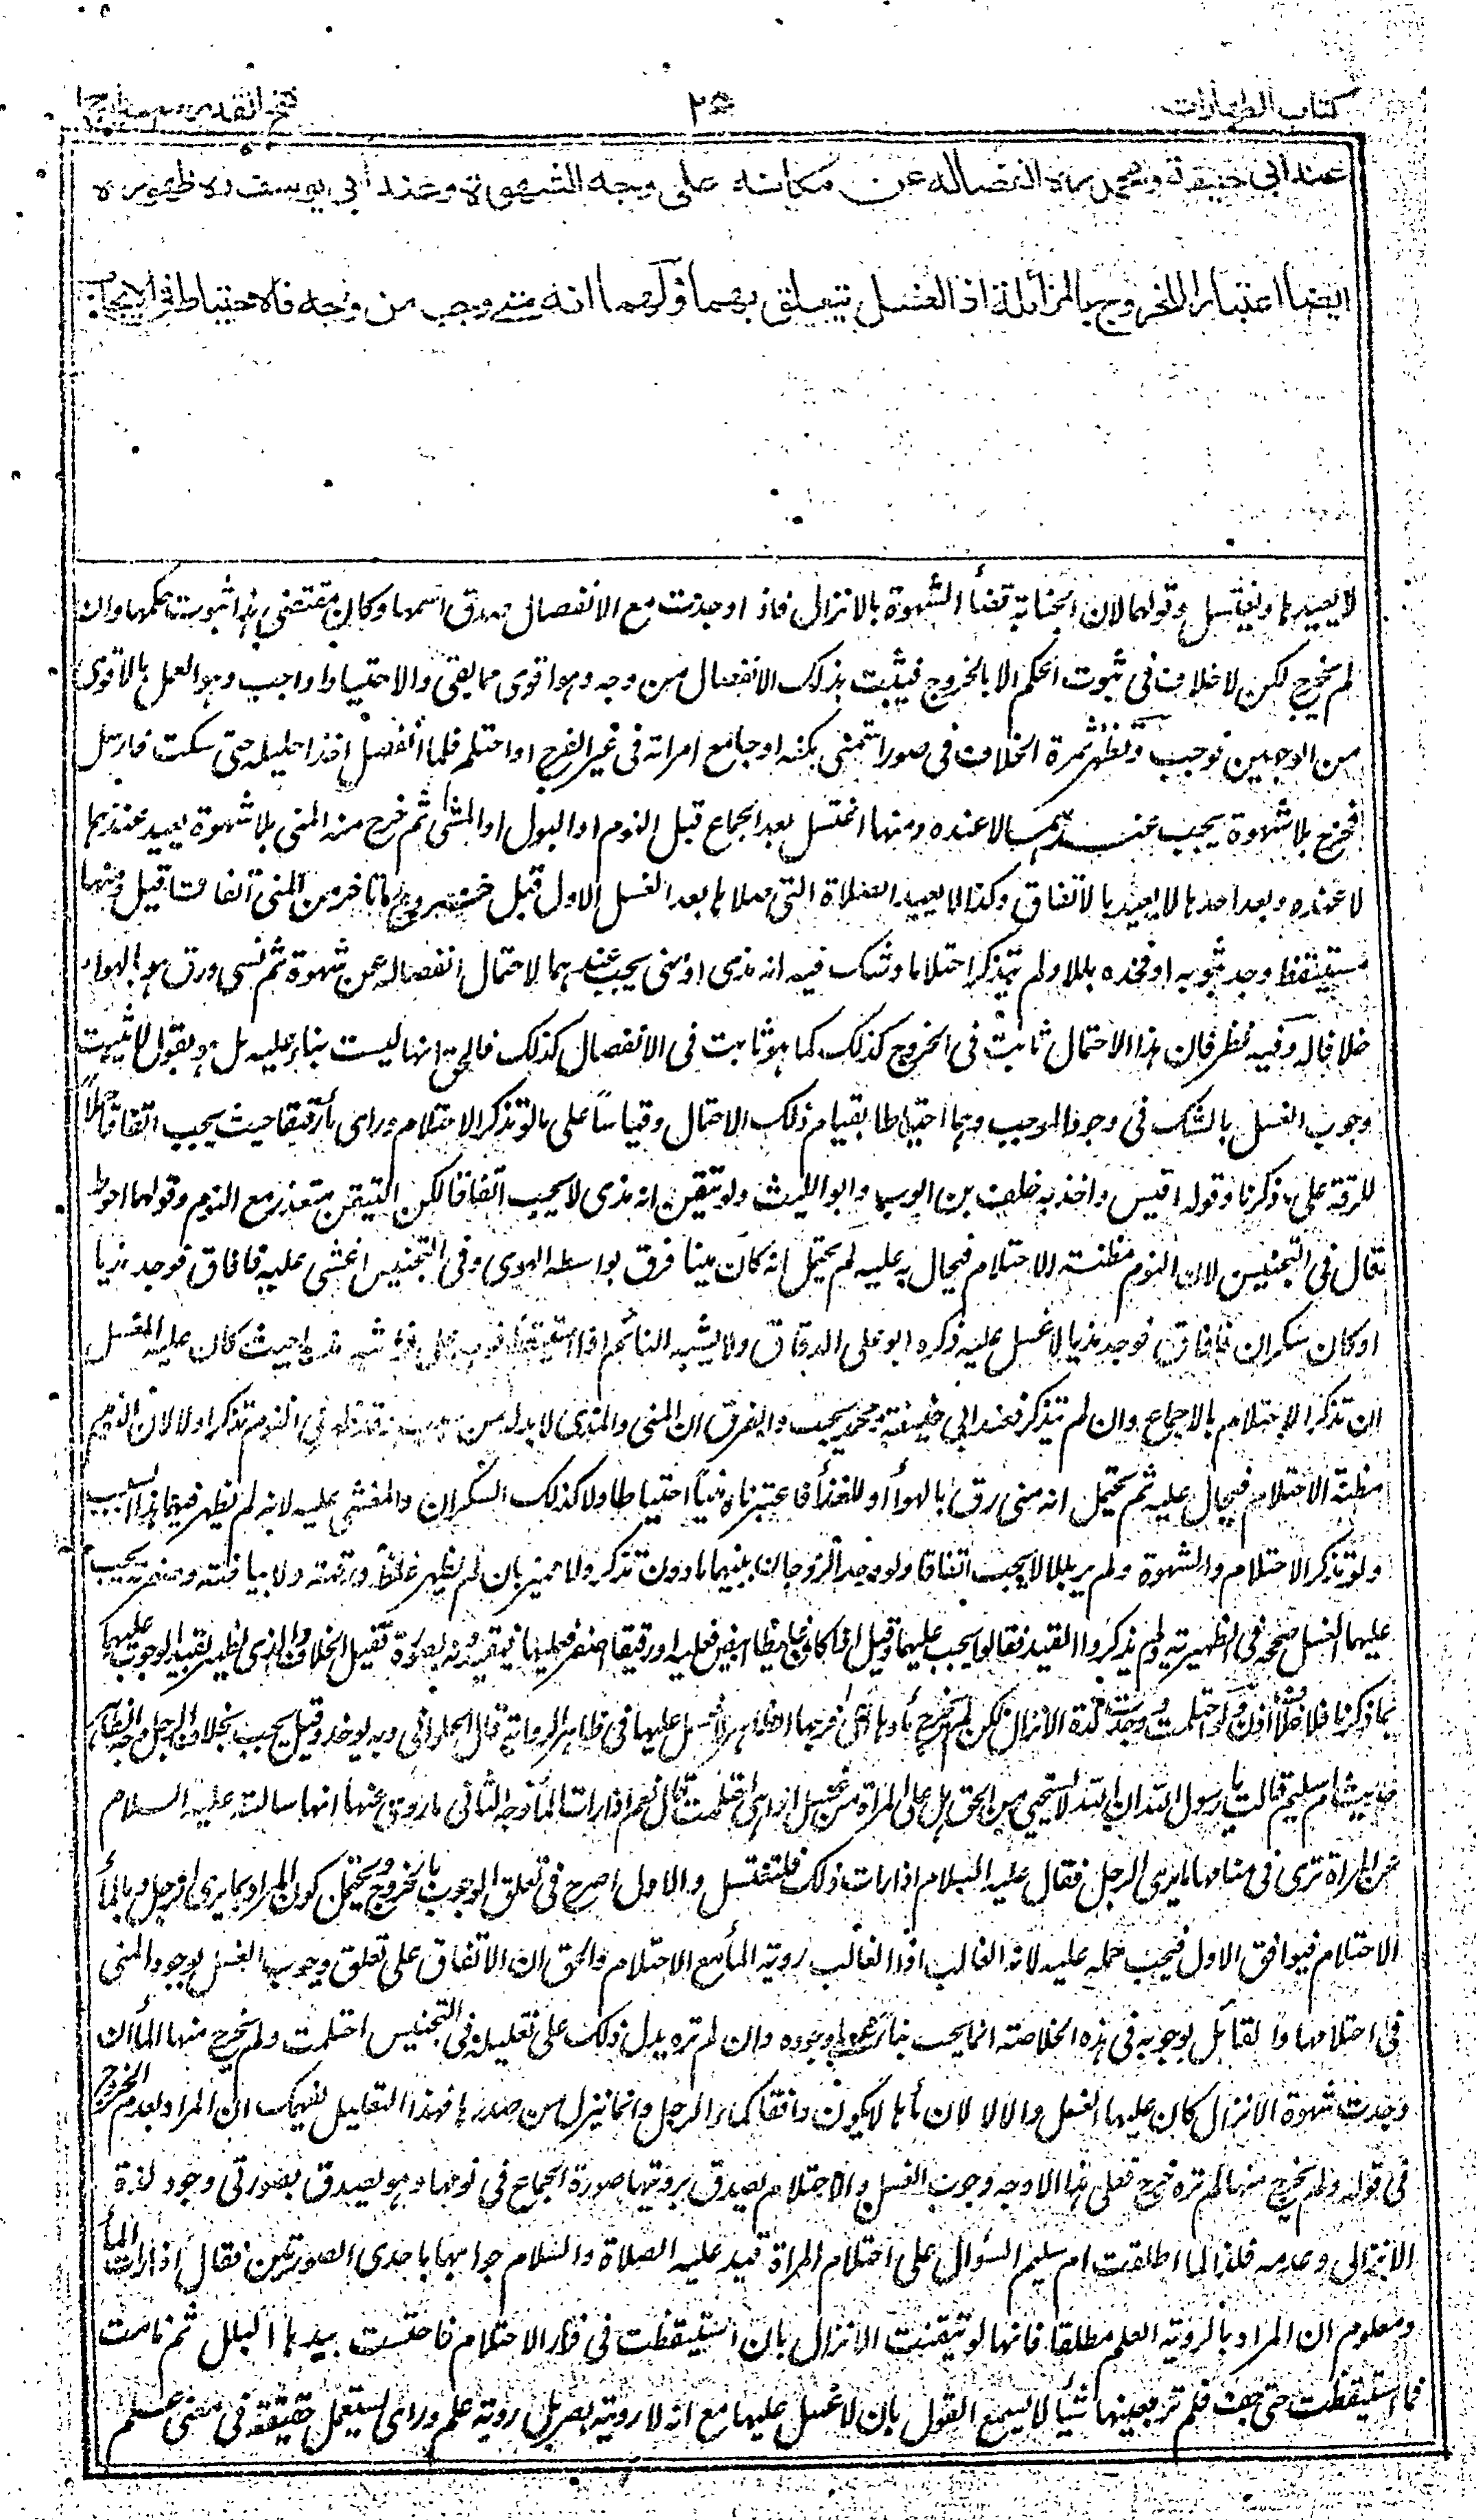 كتاب الطهارات
٢٥
فتح القدير مع هداية ج ١
عند أبي حنيفة ومحمد رح انفصاله عن مكانه على وجه الشهوة وعند أبي يوسف رح ظهوره
ايضا اعتبارا للخروج بالمزائلة اذ الغسل يتعلق بهما ولهما انه متى وجب من وجه فالاحتياط في الايجاب
لا يعيدها ويغتسل وقولهما لان الجنابة قضأ الشهوة بالانزال فاذا وجدت مع الانفصال صدق اسمها وكان مقتضى هذا ثبوت حكمها وان
لم يخرج لكن لا خلاف فى ثبوت الحكم الا بالخروج فيثبت بذلك الانفصال من وجه وهو اقوى مما بقى والاحتياط واجب وهو العمل بالاقوى
من الوجهين فوجب وتظهر ثمرة الخلاف فى صور استمنى بكفه او جامع امراته فى غير الفرج او احتلم فلما انفصل اخذ احليله حتى سكت فارسل
فخرج بلا شهوة يجب عندهما لا عنده ومنها اغتسل بعد الجماع قبل النوم او البول او المشى ثم خرج منه المنى بلا شهوة يعيد عندهما
لا عنده وبعد احدها لا يعيد بالاتفاق وكذا لا يعيد الصلاة التى صلاها بعد الغسل الاول قبل خروج ما تاخر من المنى اتفاقا قيل ومنها
مستيقظ وجد بثوبه او فخذه بللا ولم يتذكر احتلاما وشك فيه انه مذى او منى يجب عندهما لاحتمال انفصاله عن شهوة ثم نسى ورق هو بالهواء
خلافا له وفيه نظر فان هذا الاحتمال ثابت فى الخروج كذلك كما هو ثابت فى الانفصال كذلك فالحق انها ليست بناء عليه بل هو يقول لا يثبت
وجوب الغسل بالشك فى وجود الموجب وهما احتياطا بقيام ذلك الاحتمال وقياسا على ما لو تذكر الاحتلام وراى مأ رقيقا حيث يجب اتفاقا حملا
للرقة على ما ذكرنا وقوله اقيس واخذ به خلف بن ايوب وابو الليث ولو تيقن انه مذى لا يجب اتفاقا لكن التيقن متعذر مع النوم وقولهما احوط
فقال فى التجنيس لان النوم مظنة الاحتلام فيحال به عليه ثم يحتمل انه كان منيا فرق بواسطة الهوى وفى التجنيس اغشى عليه فافاق فوجد مذيا
او كان سكران فافاق فوجد مذيا لا غسل عليه ذكره ابو على الدقاق ولا يشبه النائم اذا استيقظ فوجد على فراشه مذيا حيث كان عليه الغسل
ان تذكر الاحتلام بالاجماع وان لم يتذكر فعند ابى حنيفة ومحمد يجب والفرق ان المنى والمذى لا بد له من سبب وقد ظهر فى النوم تذكر اولا لان النوم
مظنة الاحتلام فيحال عليه ثم يحتمل انه منى رق بالهوأ او للغذأ فاعتبرناه منيا احتياطا ولا كذلك السكران والمغشى عليه لانه لم يظهر فيهما هذا السبب
ولو تذكر الاحتلام والشهوة ولم ير بللا لا يجب اتفاقا ولو وجد الزوجان بينهما ماء دون تذكر ولا مميز بان لم يظهر غلظه ورقته ولا بياضه وصفرته يجب
عليهما الغسل صححه فى الظهيرية ولم يذكروا القيد فقالوا يجب عليهما وقيل اذا كان غليظا ابيض فعليه او رقيقا اصفر فعليها فيقيد وبه بصورة نقل الخلاف والذى يظهر تقييد الوجوب عليهما
بما ذكرنا فلا خلاف اذن ولو احتلمت ووجدت لذة الانزال لكن لم يخرج مأوها الى فرجها الظاهر لا غسل عليها فى ظاهر الرواية قال الحلوانى وبه يوخذ وقيل يجب بخلاف الرجل وجه الظاهر
حديث ام سليم قالت يا رسول الله ان الله لا يستحيى من الحق هل على المراة من غسل اذا هى احتلمت قال نعم اذا رات المأ وجه الثانى ما روى عنها انها سالته عليه السلام
عن المراة ترى فى منامها ما يرى الرجل فقال عليه السلام اذا رات ذلك فلتغتسل والاول اصرح فى تعلق الوجوب بالخروج ويحتمل كون المراد بما يرى الرجل وبالمأ
الاحتلام فيوافق الاول فيجب حمله عليه لانه الغالب اذ الغالب روية المأ مع الاحتلام والحق ان الاتفاق على تعلق وجوب الغسل بوجود المنى
فى احتلامها والقائل بوجوبه فى هذه الخلاصة انما يجب بناء على وجوده وان لم تره يدل ذلك على تعليله فى التجنيس احتلمت ولم يخرج منها المأ ان
وجدت شهوة الانزال كان عليها الغسل والا لا لان مأها لا يكون دافقا كماء الرجل وانما ينزل من صدرها فهذا التعليل يفهمك ان المراد بعدم الخروج
فى قوله ولم يخرج منها لم تره خرج فعلى هذا الاوجه وجوب الغسل والاحتلام يصدق برويتها صورة الجماع فى نومها وهو يصدق بصورتى وجود لذة
الانزال وعدمه فلذا لما اطلقت ام سليم السؤال على احتلام المراة قيد عليه الصلاة والسلام جوابها باحدى الصورتين فقال اذا رات المأ
ومعلوم ان المراد بالروية العلم مطلقا فانها لو تيقنت الانزال بان استيقظت فى فور الاحتلام فاحست بيدها البلل ثم نامت
فما استيقظت حتى جف فلم تر بعينها شيأ لا يسع القول بان لا غسل عليها مع انه لا روية بصر بل روية علم وراى يستعمل حقيقة فى معنى علم